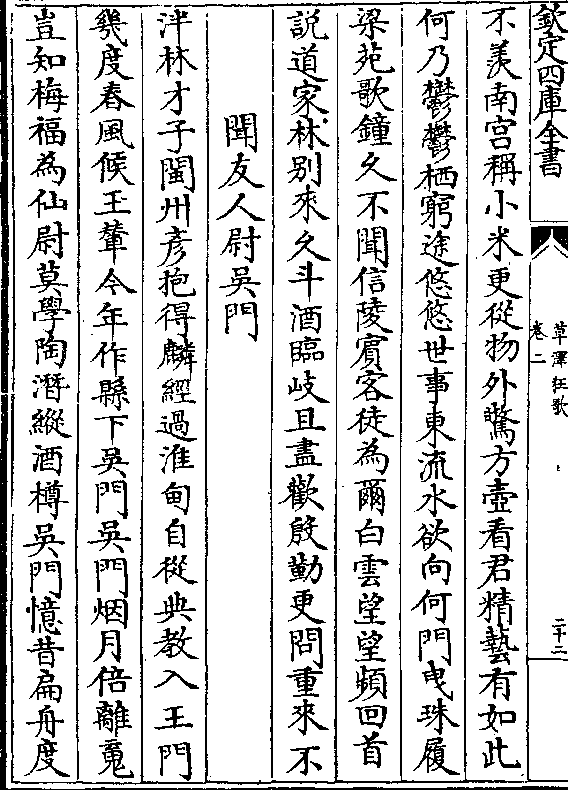 欽定四庫全書
草澤狂歌
卷二
二十二
不羨南宮稱小米更從物外驚方壺看君精藝有如此
何乃鬱鬱栖窮途悠悠世事東流水欲向何門曳珠履
梁苑歌鐘久不聞信陵賓客徒為爾白雲望望頻回首
說道家林別來久斗酒臨岐且盡歡殷勤更問重來不
聞友人尉吳門
泮林才子閩州彥抱得麟經過淮甸自從典教入王門
幾度春風候王輦今年作縣下吳門吳門烟月倍離䰟
豈知梅福為仙尉莫學陶潛縱酒樽吳門憶昔扁舟度